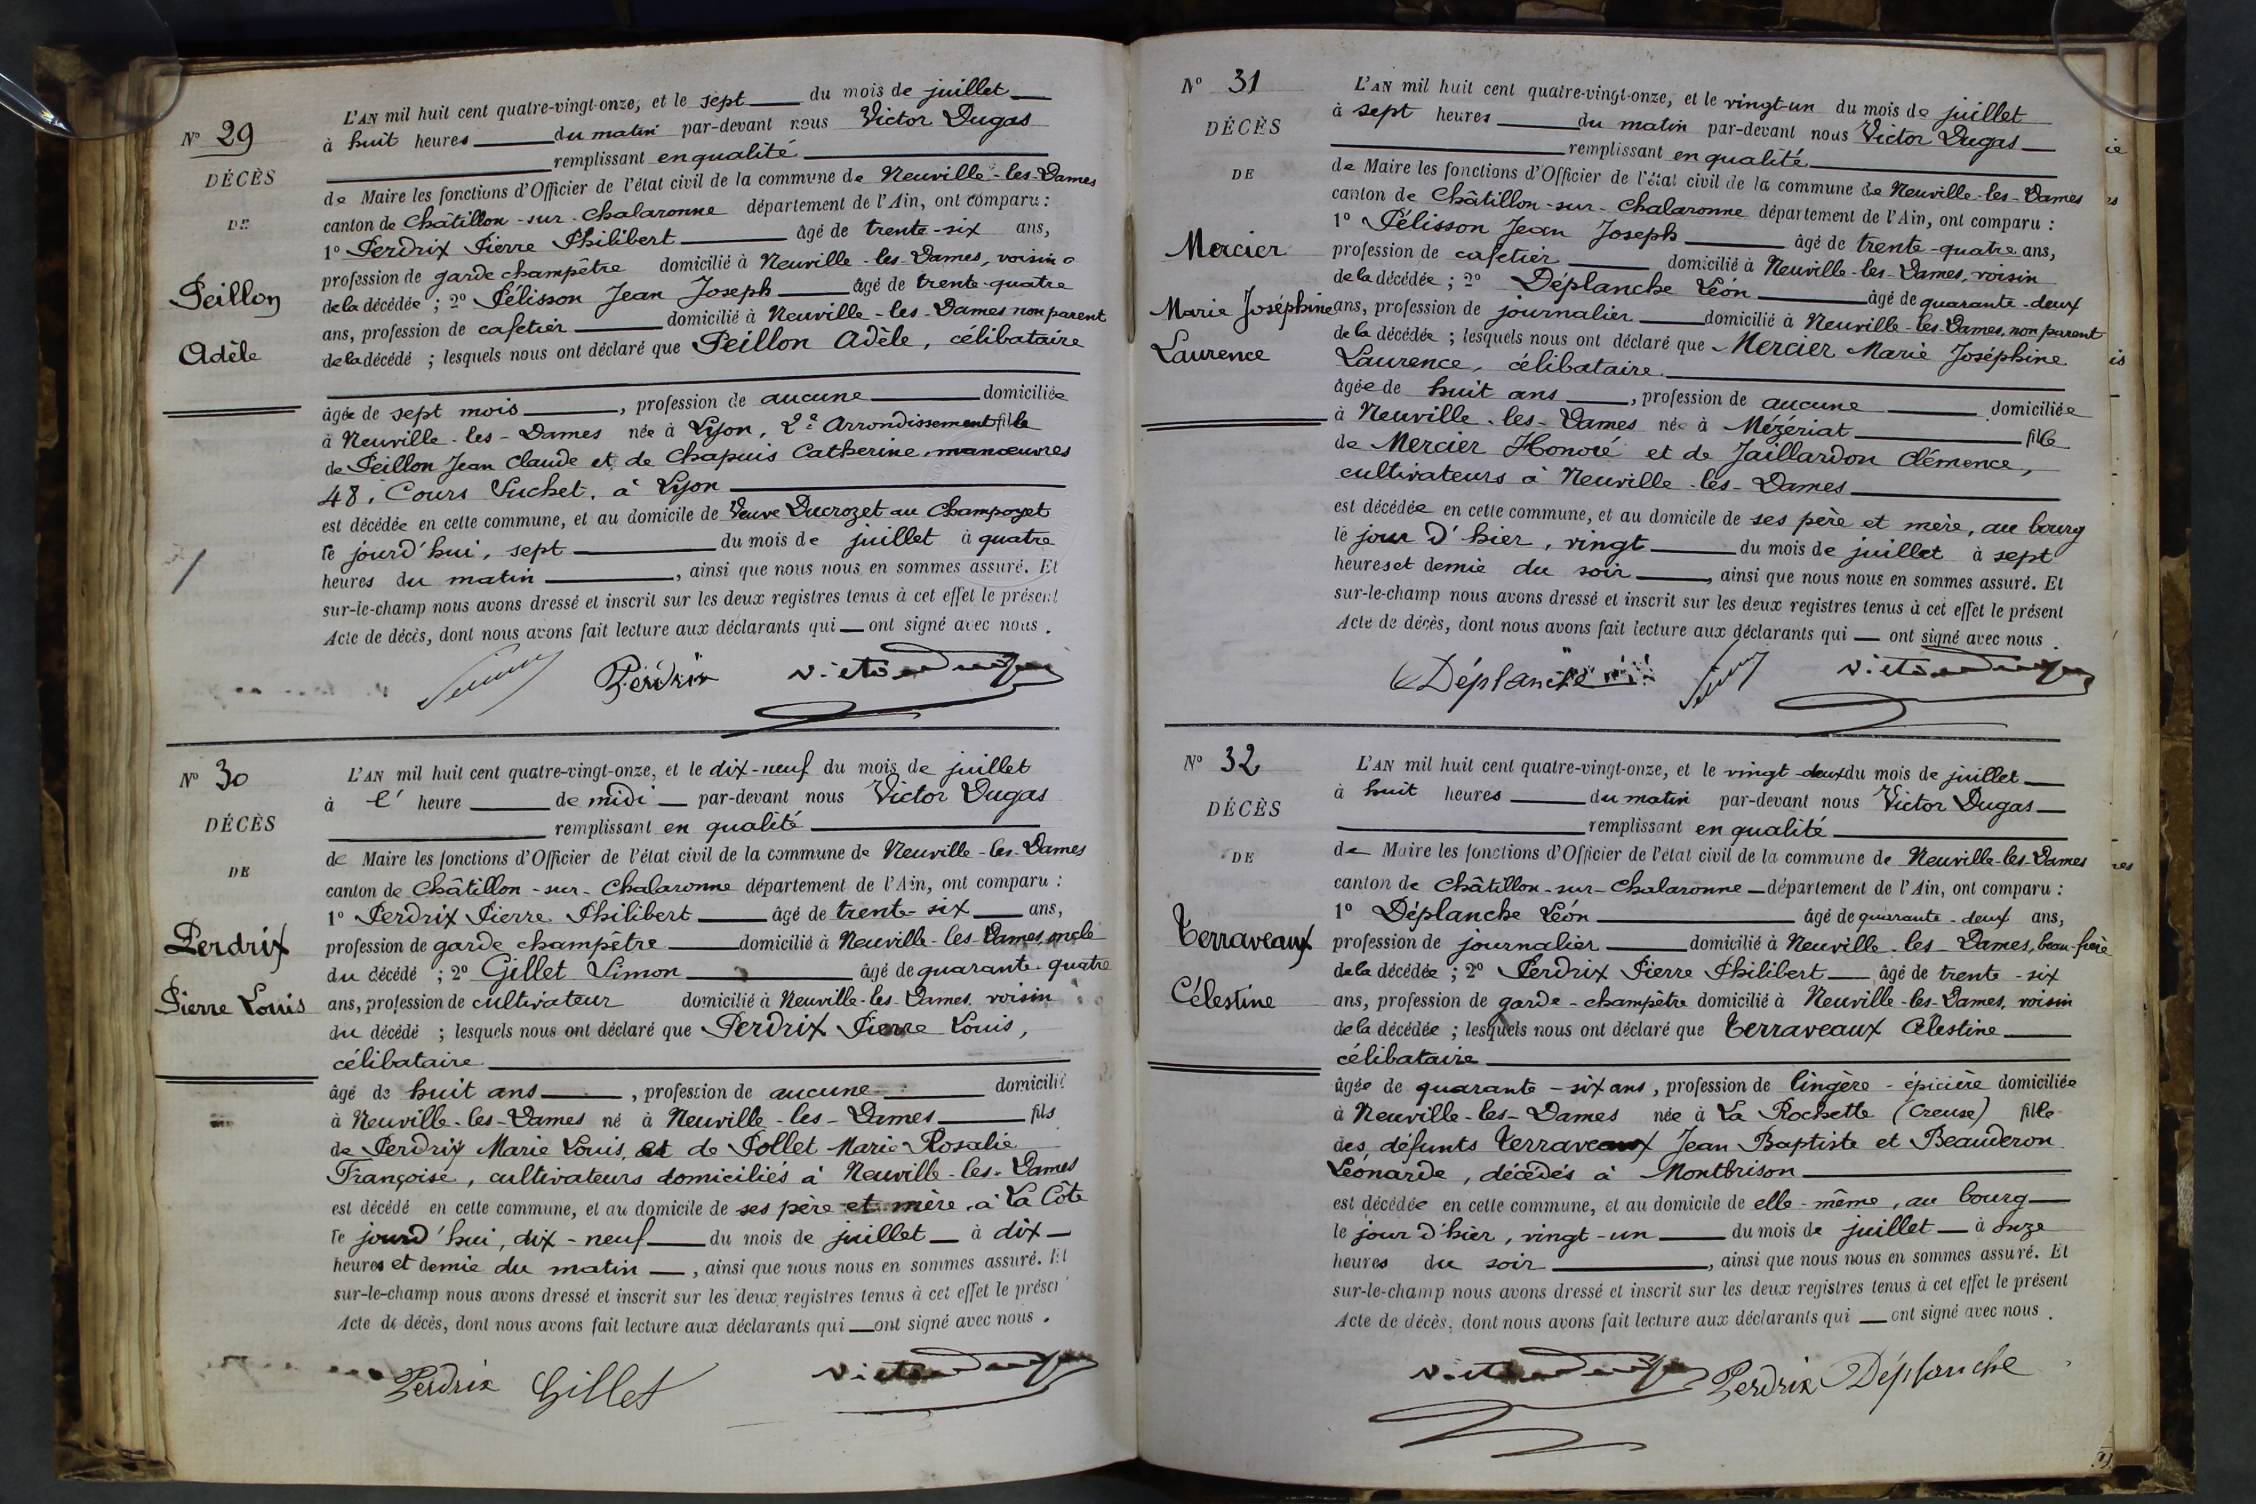 N° 29
DÉCÈS
DE
Peillon
Adèle
L'AN mil huit cent quatre-vingt-onze, et le sept du mois de juillet
à huit heures du matin par-devant nous Victor Dugas
remplissant en qualité
de Maire les fonctions d'Officier de l'état civil de la commune de Neuville-les-Dames
canton de Châtillon-sur-Chalaronne département de l'Ain, ont comparu :
1° Perdrix Pierre Philibert âgé de trente-six ans,
profession de garde champêtre domicilié à Neuville-les-Dames, voisin
de la décédée ; 2° Pélisson Jean Joseph âgé de trente-quatre
ans, profession de cafetier domicilié à Neuville-les-Dames non parent
de la décédé ; lesquels nous ont déclaré que Peillon Adèle, célibataire
âgée de sept mois, profession de aucune domiciliée
à Neuville-les-Dames née à Lyon, 2e Arrondissement fille
de Peillon Jean Claude et de Chapuis Catherine, manœuvres
48, Cours Suchet, à Lyon
est décédée en cette commune, et au domicile de Veuve Ducrozet au Champoyet
le jourd'hui, sept du mois de juillet à quatre
heures du matin, ainsi que nous nous en sommes assuré. Et
sur-le-champ nous avons dressé et inscrit sur les deux registres tenus à cet effet le présent
Acte de décès, dont nous avons fait lecture aux déclarants qui ont signé avec nous.
Perdrix Victor Dugas
N° 30
DÉCÈS
DE
Perdrix
Pierre Louis
L'AN mil huit cent quatre-vingt-onze, et le dix-neuf du mois de juillet
à l' heure de midi par-devant nous Victor Dugas
remplissant en qualité
de Maire les fonctions d'Officier de l'état civil de la commune de Neuville-les-Dames
canton de Châtillon-sur-Chalaronne département de l'Ain, ont comparu :
1° Perdrix Pierre Philibert âgé de trente-six ans,
profession de garde champêtre domicilié à Neuville-les-Dames, oncle
du décédé ; 2° Gillet Simon âgé de quarante-quatre
ans, profession de cultivateur domicilié à Neuville-les-Dames, voisin
du décédé ; lesquels nous ont déclaré que Perdrix Pierre Louis,
célibataire
âgé de huit ans, profession de aucune domicilié
à Neuville-les-Dames né à Neuville-les-Dames fils
de Perdrix Marie Louis et de Pollet Marie Rosalie
Françoise, cultivateurs domiciliés à Neuville-les-Dames
est décédé en cette commune, et au domicile de ses père et mère, à La Côte
le jourd'hui, dix-neuf du mois de juillet à dix
heures et demie du matin, ainsi que nous nous en sommes assuré. Et
sur-le-champ nous avons dressé et inscrit sur les deux registres tenus à cet effet le présen
Acte de décès, dont nous avons fait lecture aux déclarants qui ont signé avec nous.
Perdrix Gillet Victor Dugas
N° 31
DÉCÈS
DE
Mercier
Marie Joséphine
Laurence
L'AN mil huit cent quatre-vingt-onze, et le vingt-un du mois de juillet
à sept heures du matin par-devant nous Victor Dugas
remplissant en qualité
de Maire les fonctions d'Officier de l'état civil de la commune de Neuville-les-Dames
canton de Châtillon-sur-Chalaronne département de l'Ain, ont comparu :
1° Pélisson Jean Joseph âgé de trente-quatre ans,
profession de cafetier domicilié à Neuville-les-Dames, voisin
de la décédée ; 2° Déplanche Léon âgé de quarante-deux
ans, profession de journalier domicilié à Neuville-les-Dames, non parent
de la décédée ; lesquels nous ont déclaré que Mercier Marie Joséphine
Laurence, célibataire
âgée de huit ans, profession de aucune domiciliée
à Neuville-les-Dames née à Mézériat fille
de Mercier Honoré et de Jaillardon Clémence,
cultivateurs à Neuville-les-Dames
est décédée en cette commune, et au domicile de ses père et mère, au bourg
le jour d'hier, vingt du mois de juillet à sept
heures et demie du soir, ainsi que nous nous en sommes assuré. Et
sur-le-champ nous avons dressé et inscrit sur les deux registres tenus à cet effet le présent
Acte de décès, dont nous avons fait lecture aux déclarants qui ont signé avec nous.
Déplanche Victor Dugas
N° 32
DÉCÈS
DE
Terraveaux
Célestine
L'AN mil huit cent quatre-vingt-onze, et le vingt-deux du mois de juillet
à huit heures du matin par-devant nous Victor Dugas
remplissant en qualité
de Maire les fonctions d'Officier de l'état civil de la commune de Neuville-les-Dames
canton de Châtillon-sur-Chalaronne département de l'Ain, ont comparu :
1° Déplanche Léon âgé de quarante-deux ans,
profession de journalier domicilié à Neuville-les-Dames, beau-frère
de la décédée ; 2° Perdrix Pierre Philibert âgé de trente-six
ans, profession de garde-champêtre domicilié à Neuville-les-Dames, voisin
de la décédée ; lesquels nous ont déclaré que Terraveaux Célestine
célibataire
âgée de quarante-six ans, profession de lingère-épicière domiciliée
à Neuville-les-Dames née à La Rochette (Creuse) fille
des défunts Terraveaux Jean Baptiste et Beauderon
Léonarde, décédés à Montbrison
est décédée en cette commune, et au domicile de elle-même, au bourg
le jour d'hier, vingt-un du mois de juillet à onze
heures du soir, ainsi que nous nous en sommes assuré. Et
sur-le-champ nous avons dressé et inscrit sur les deux registres tenus à cet effet le présent
Acte de décès, dont nous avons fait lecture aux déclarants qui ont signé avec nous.
Victor Dugas Perdrix Déplanche